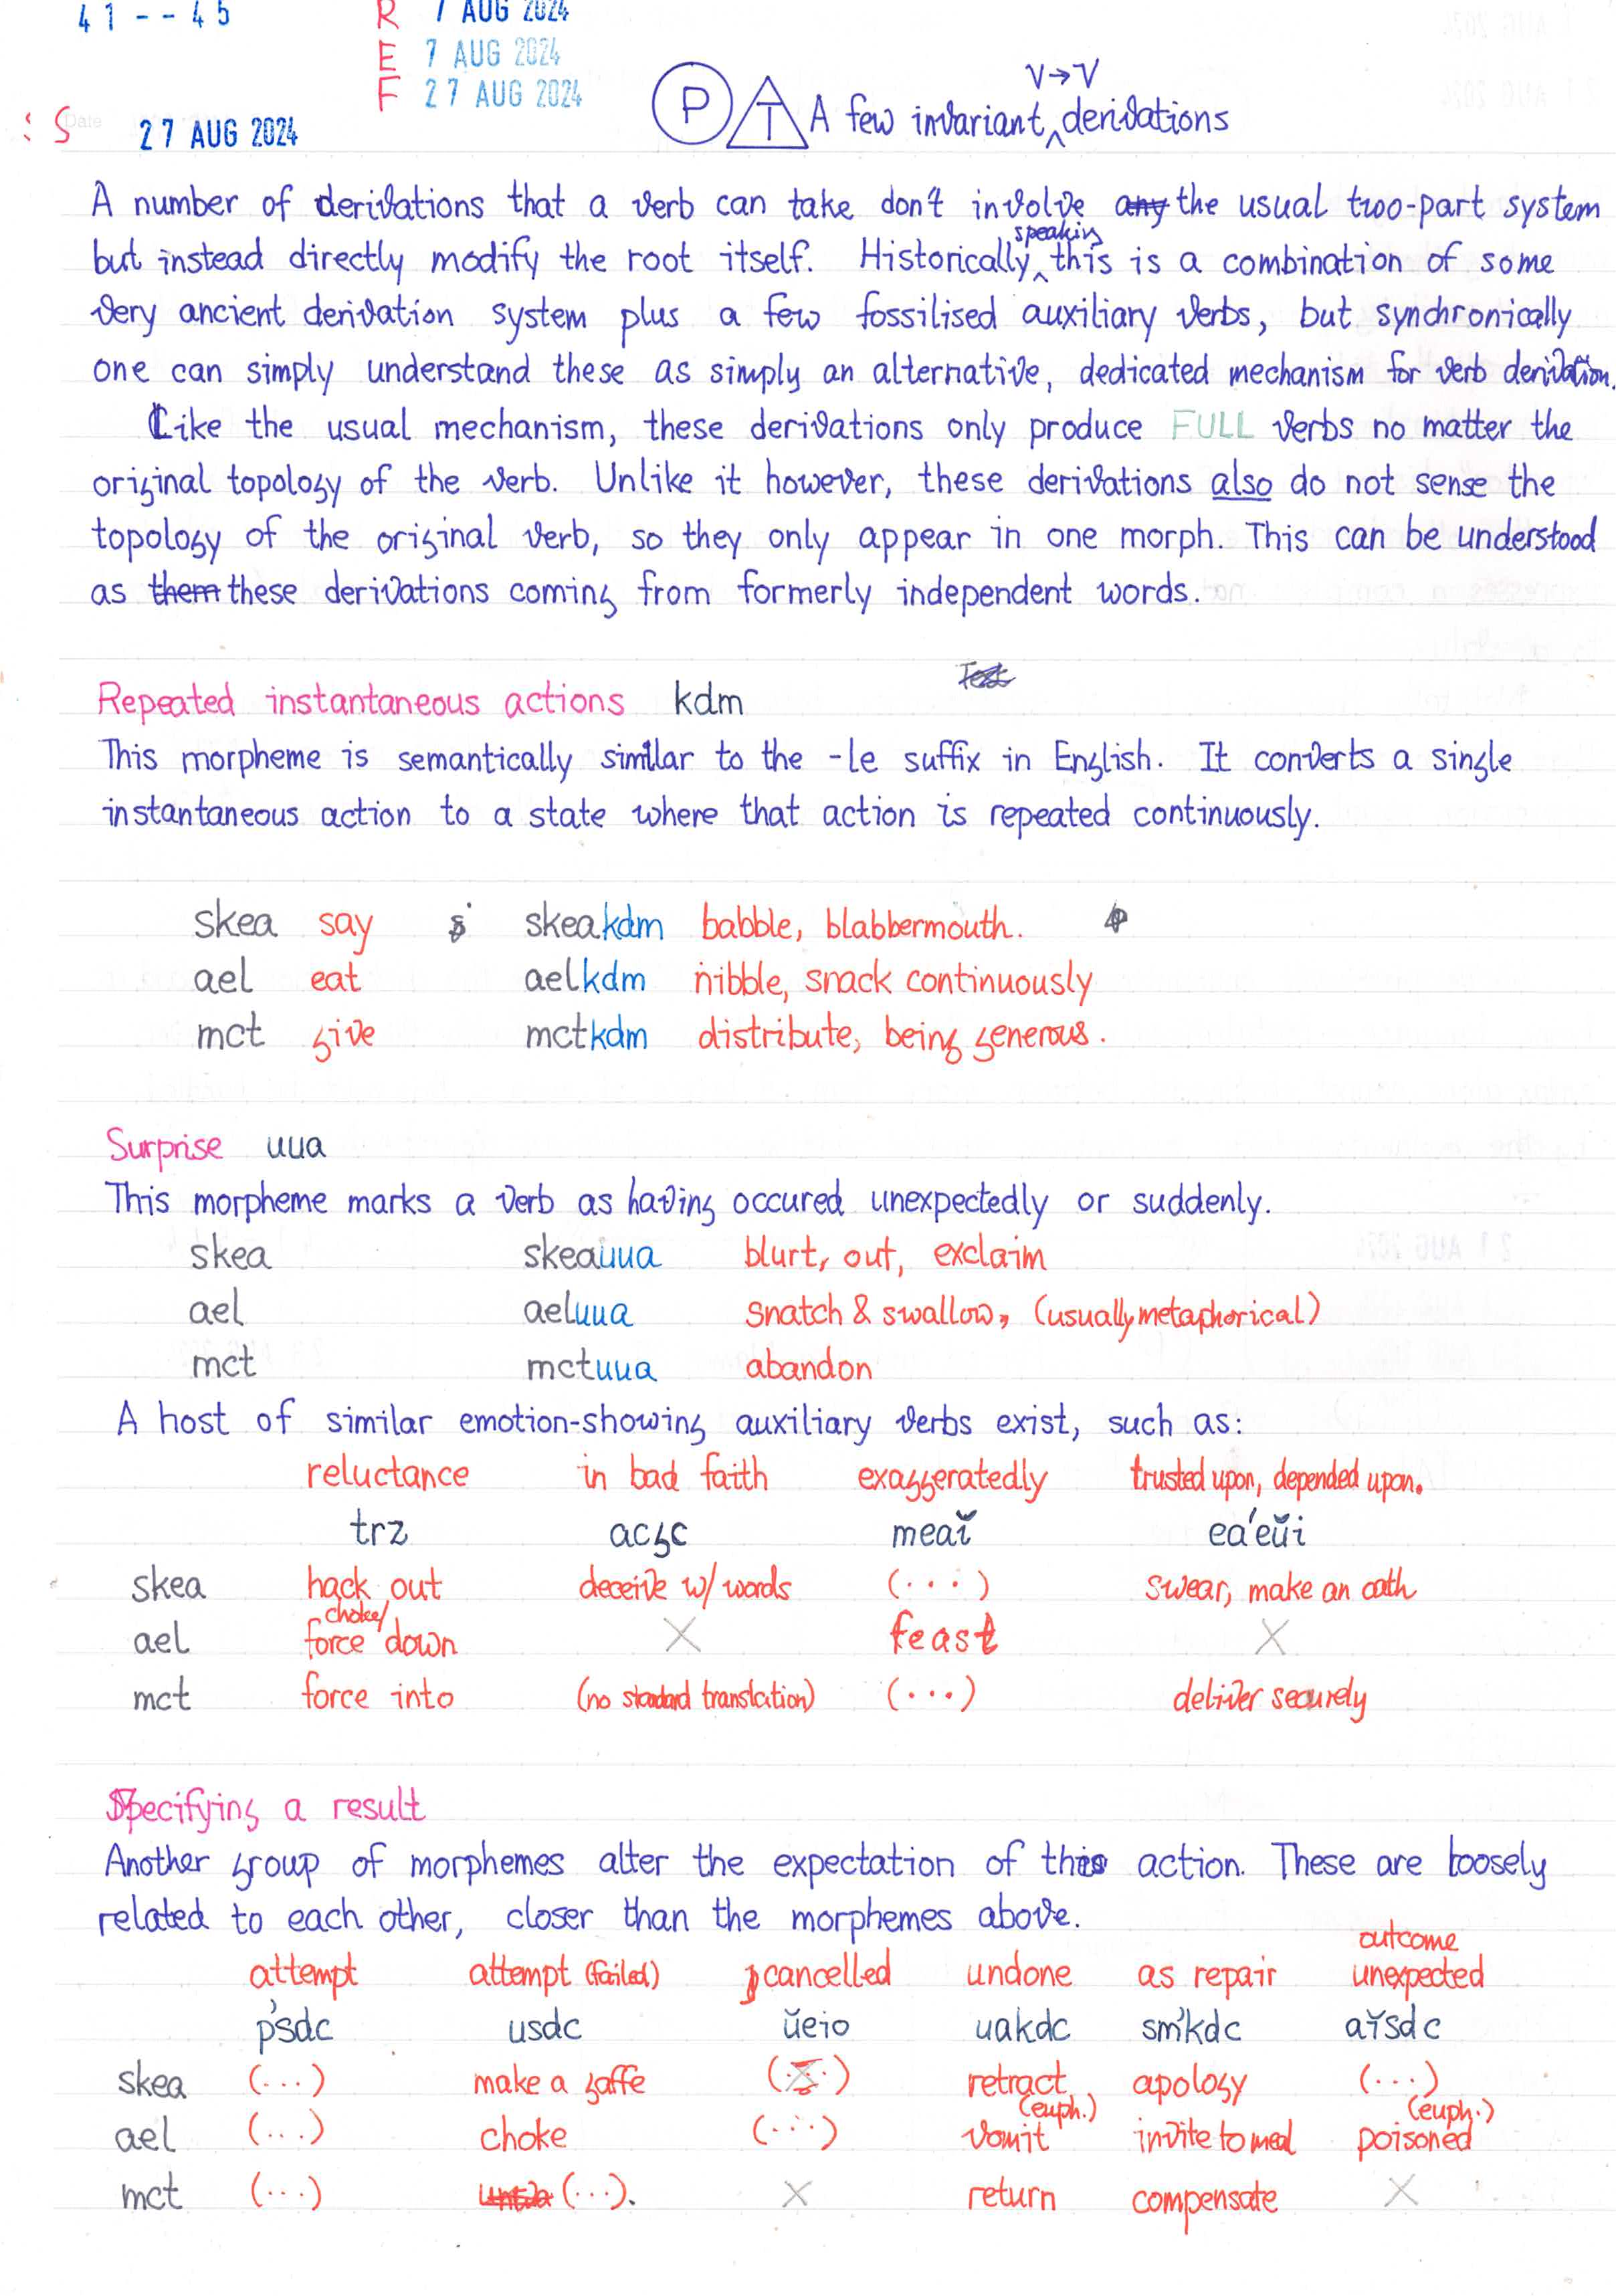 41--45
R 7 AUG 2024
E 7 AUG 2024
F 27 AUG 2024
: S Date 27 AUG 2024
P T A few invariant V→V derivations
A number of derivations that a verb can take don't involve any the usual two-part system
but instead directly modify the root itself. Historically speaking this is a combination of some
very ancient derivation system plus a few fossilised auxiliary verbs, but synchronically
one can simply understand these as simply an alternative, dedicated mechanism for verb derivation.
Like the usual mechanism, these derivations only produce FULL verbs no matter the
original topology of the verb. Unlike it however, these derivations also do not sense the
topology of the original verb, so they only appear in one morph. This can be understood
as them these derivations coming from formerly independent words.
Test
Repeated instantaneous actions kdm
This morpheme is semantically similar to the -le suffix in English. It converts a single
instantaneous action to a state where that action is repeated continuously.
skea say skeakdm babble, blabbermouth.
ael eat aelkdm nibble, snack continuously
mct give mctkdm distribute, being generous.
Surprise uua
This morpheme marks a verb as having occured unexpectedly or suddenly.
skea skeauua blurt, out, exclaim
ael aeluua snatch & swallow, (usually metaphorical)
mct mctuua abandon
A host of similar emotion-showing auxiliary verbs exist, such as:
reluctance in bad faith exaggeratedly trusted upon, depended upon.
trz acgc meaǐ eáeǔi
skea hack out deceive w/ words (...) swear, make an oath
ael choke/ force down X feast X
mct force into (no standard translation) (...) deliver securely
Specifying a result
Another group of morphemes alter the expectation of this action. These are loosely
related to each other, closer than the morphemes above.
attempt attempt (failed) cancelled undone as repair outcome unexpected
p'sdc usdc ǔeio uakdc sm'kdc aǐsdc
skea (...) make a gaffe (...) retract apology (...)
ael (...) choke (...) vomit (euph.) invite to meal poisoned (euph.)
mct (...) (...). X return compensate X